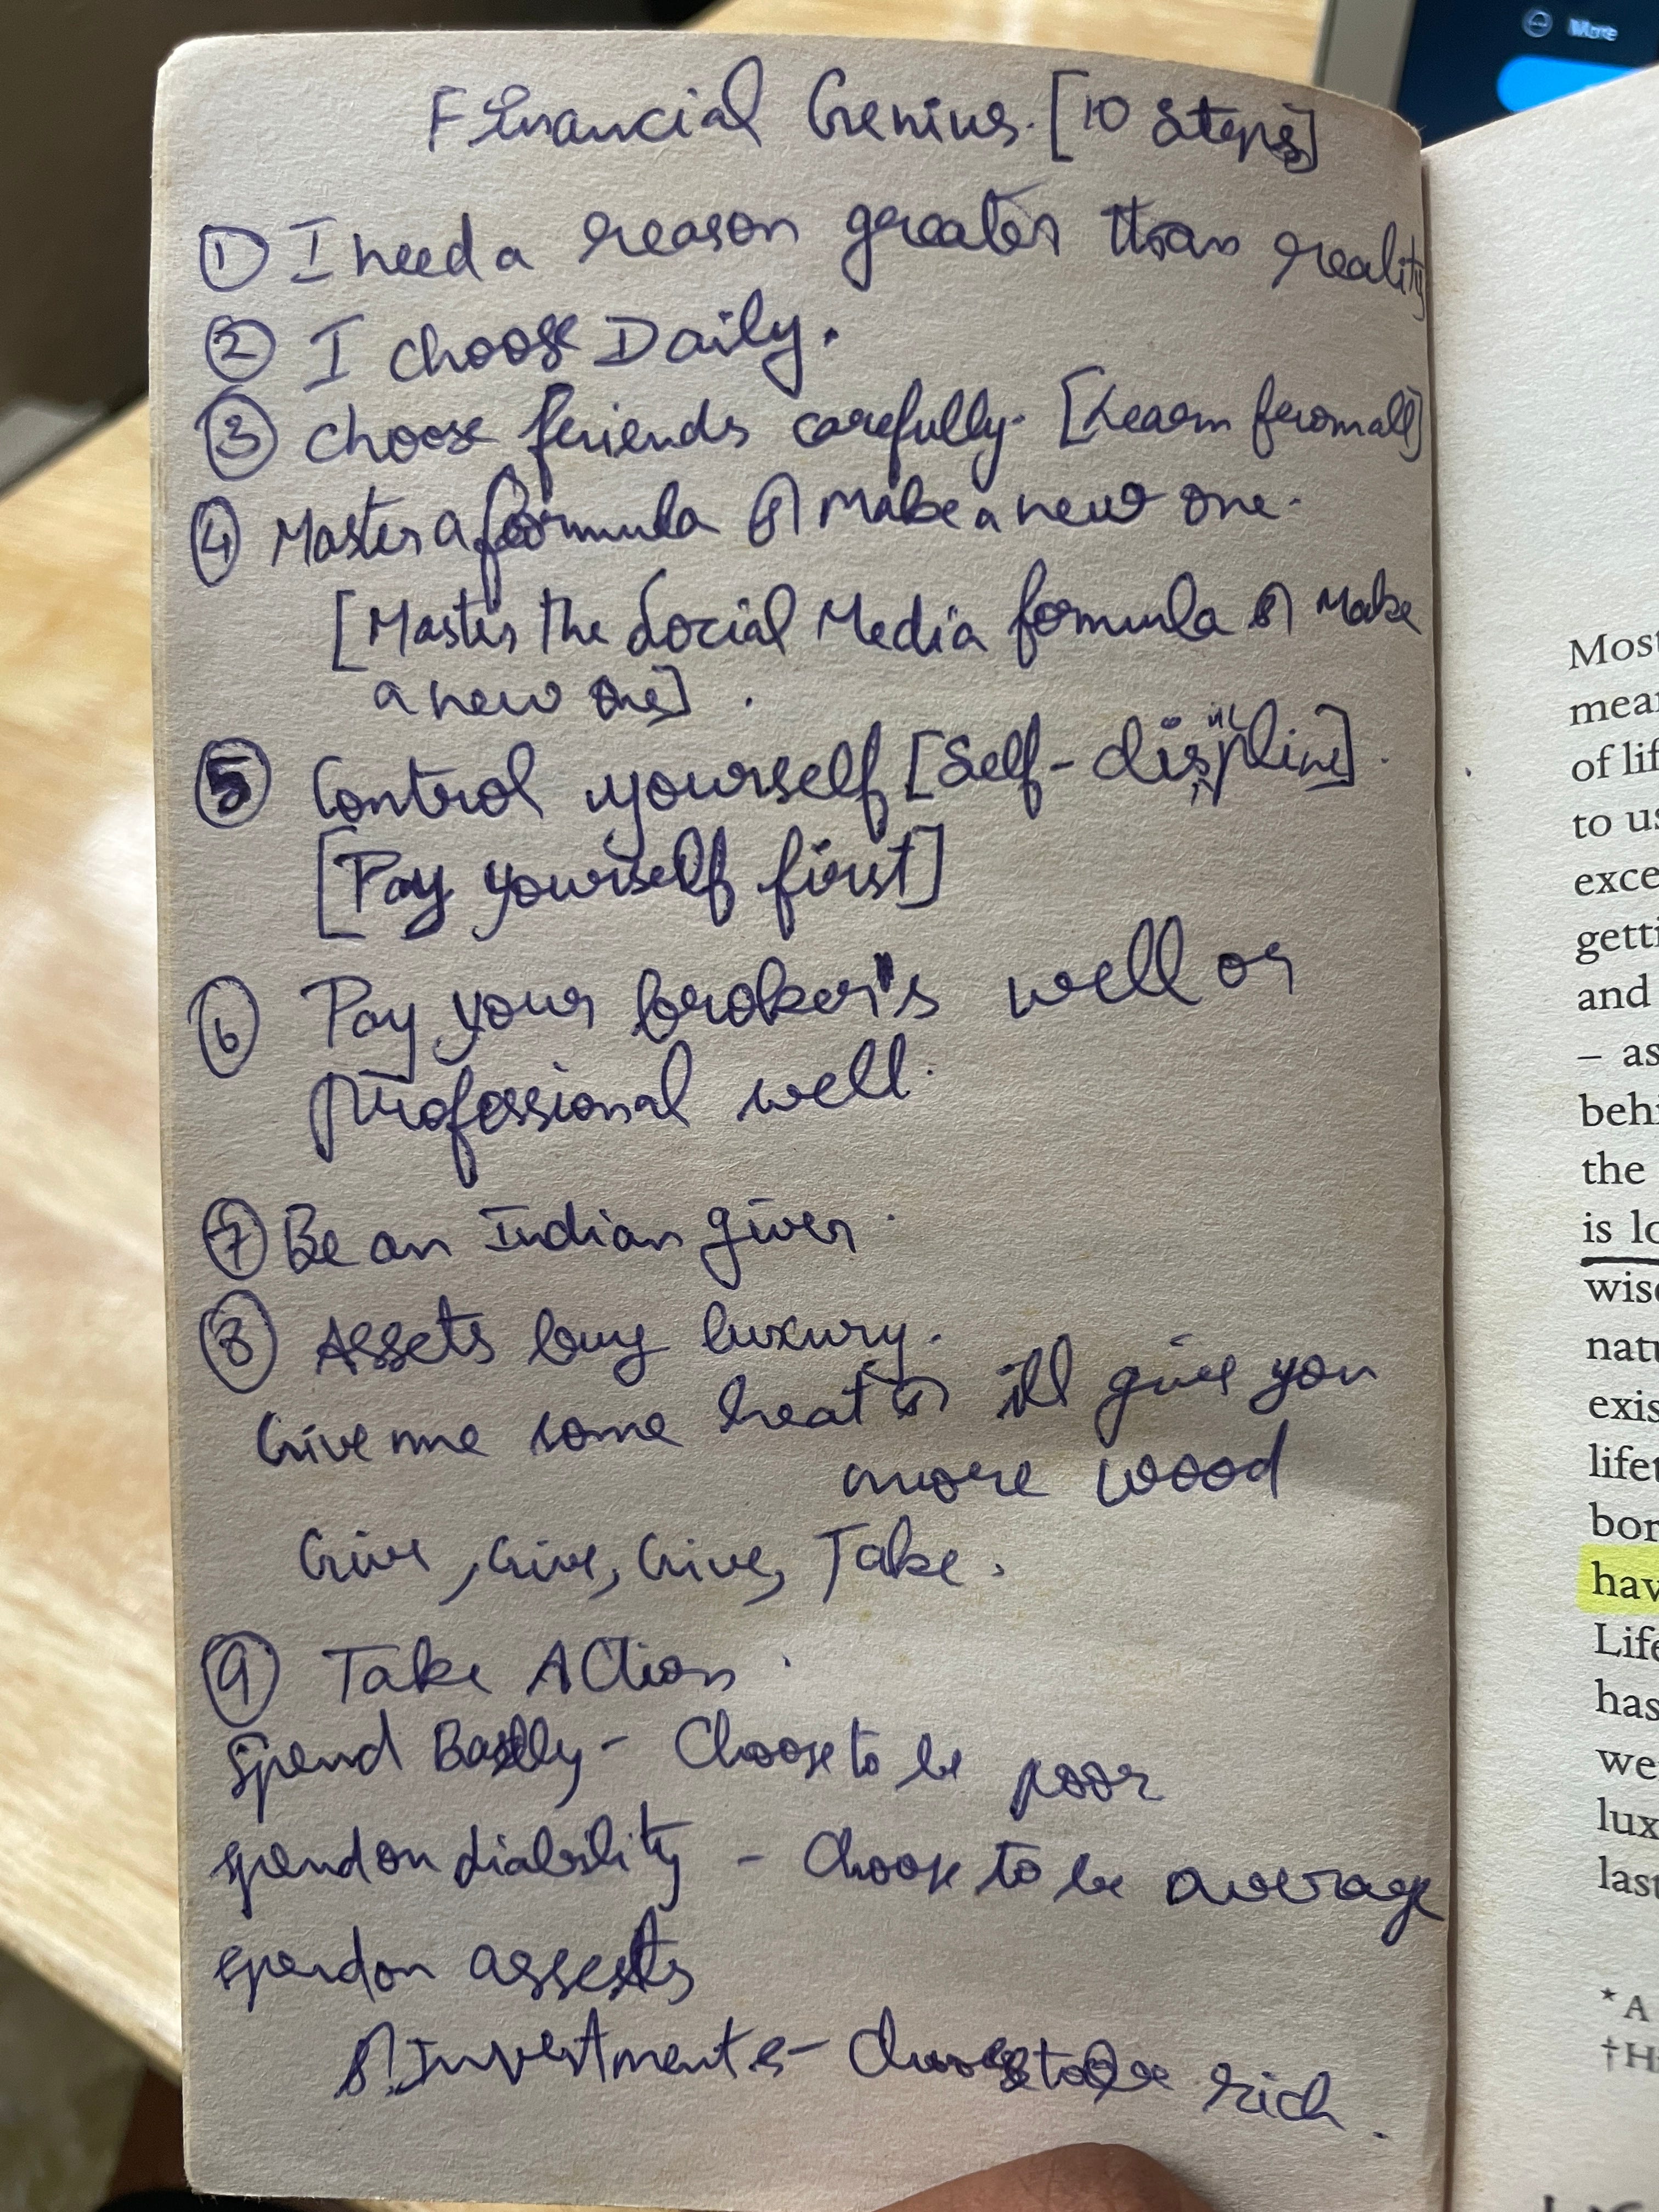 More
Financial Genius. [10 Steps]
① I need a reason greater than reality
② I choose Daily.
③ choose friends carefully. [Learn from all]
④ Master a formula & Make a new one.
[Master the Social Media formula & Make
a new one].
⑤ Control yourself [Self-discipline].
[Pay yourself first]
⑥ Pay your broker's well or
professional well.
⑦ Be an Indian giver.
⑧ Assets buy luxury.
Give me some heat & i'll give you
more wood
Give, Give, Give, Take.
⑨ Take Action.
Spend Badly - Choose to be poor
spend on liability - Choose to be average
spend on assests
& Investments - Choose to be rich.
Most
mean
of lif
to us
exce
getti
and
– as
behi
the
is lo
wise
natu
exis
lifet
bor
hav
Life
has
we
lux
last
* A
†H